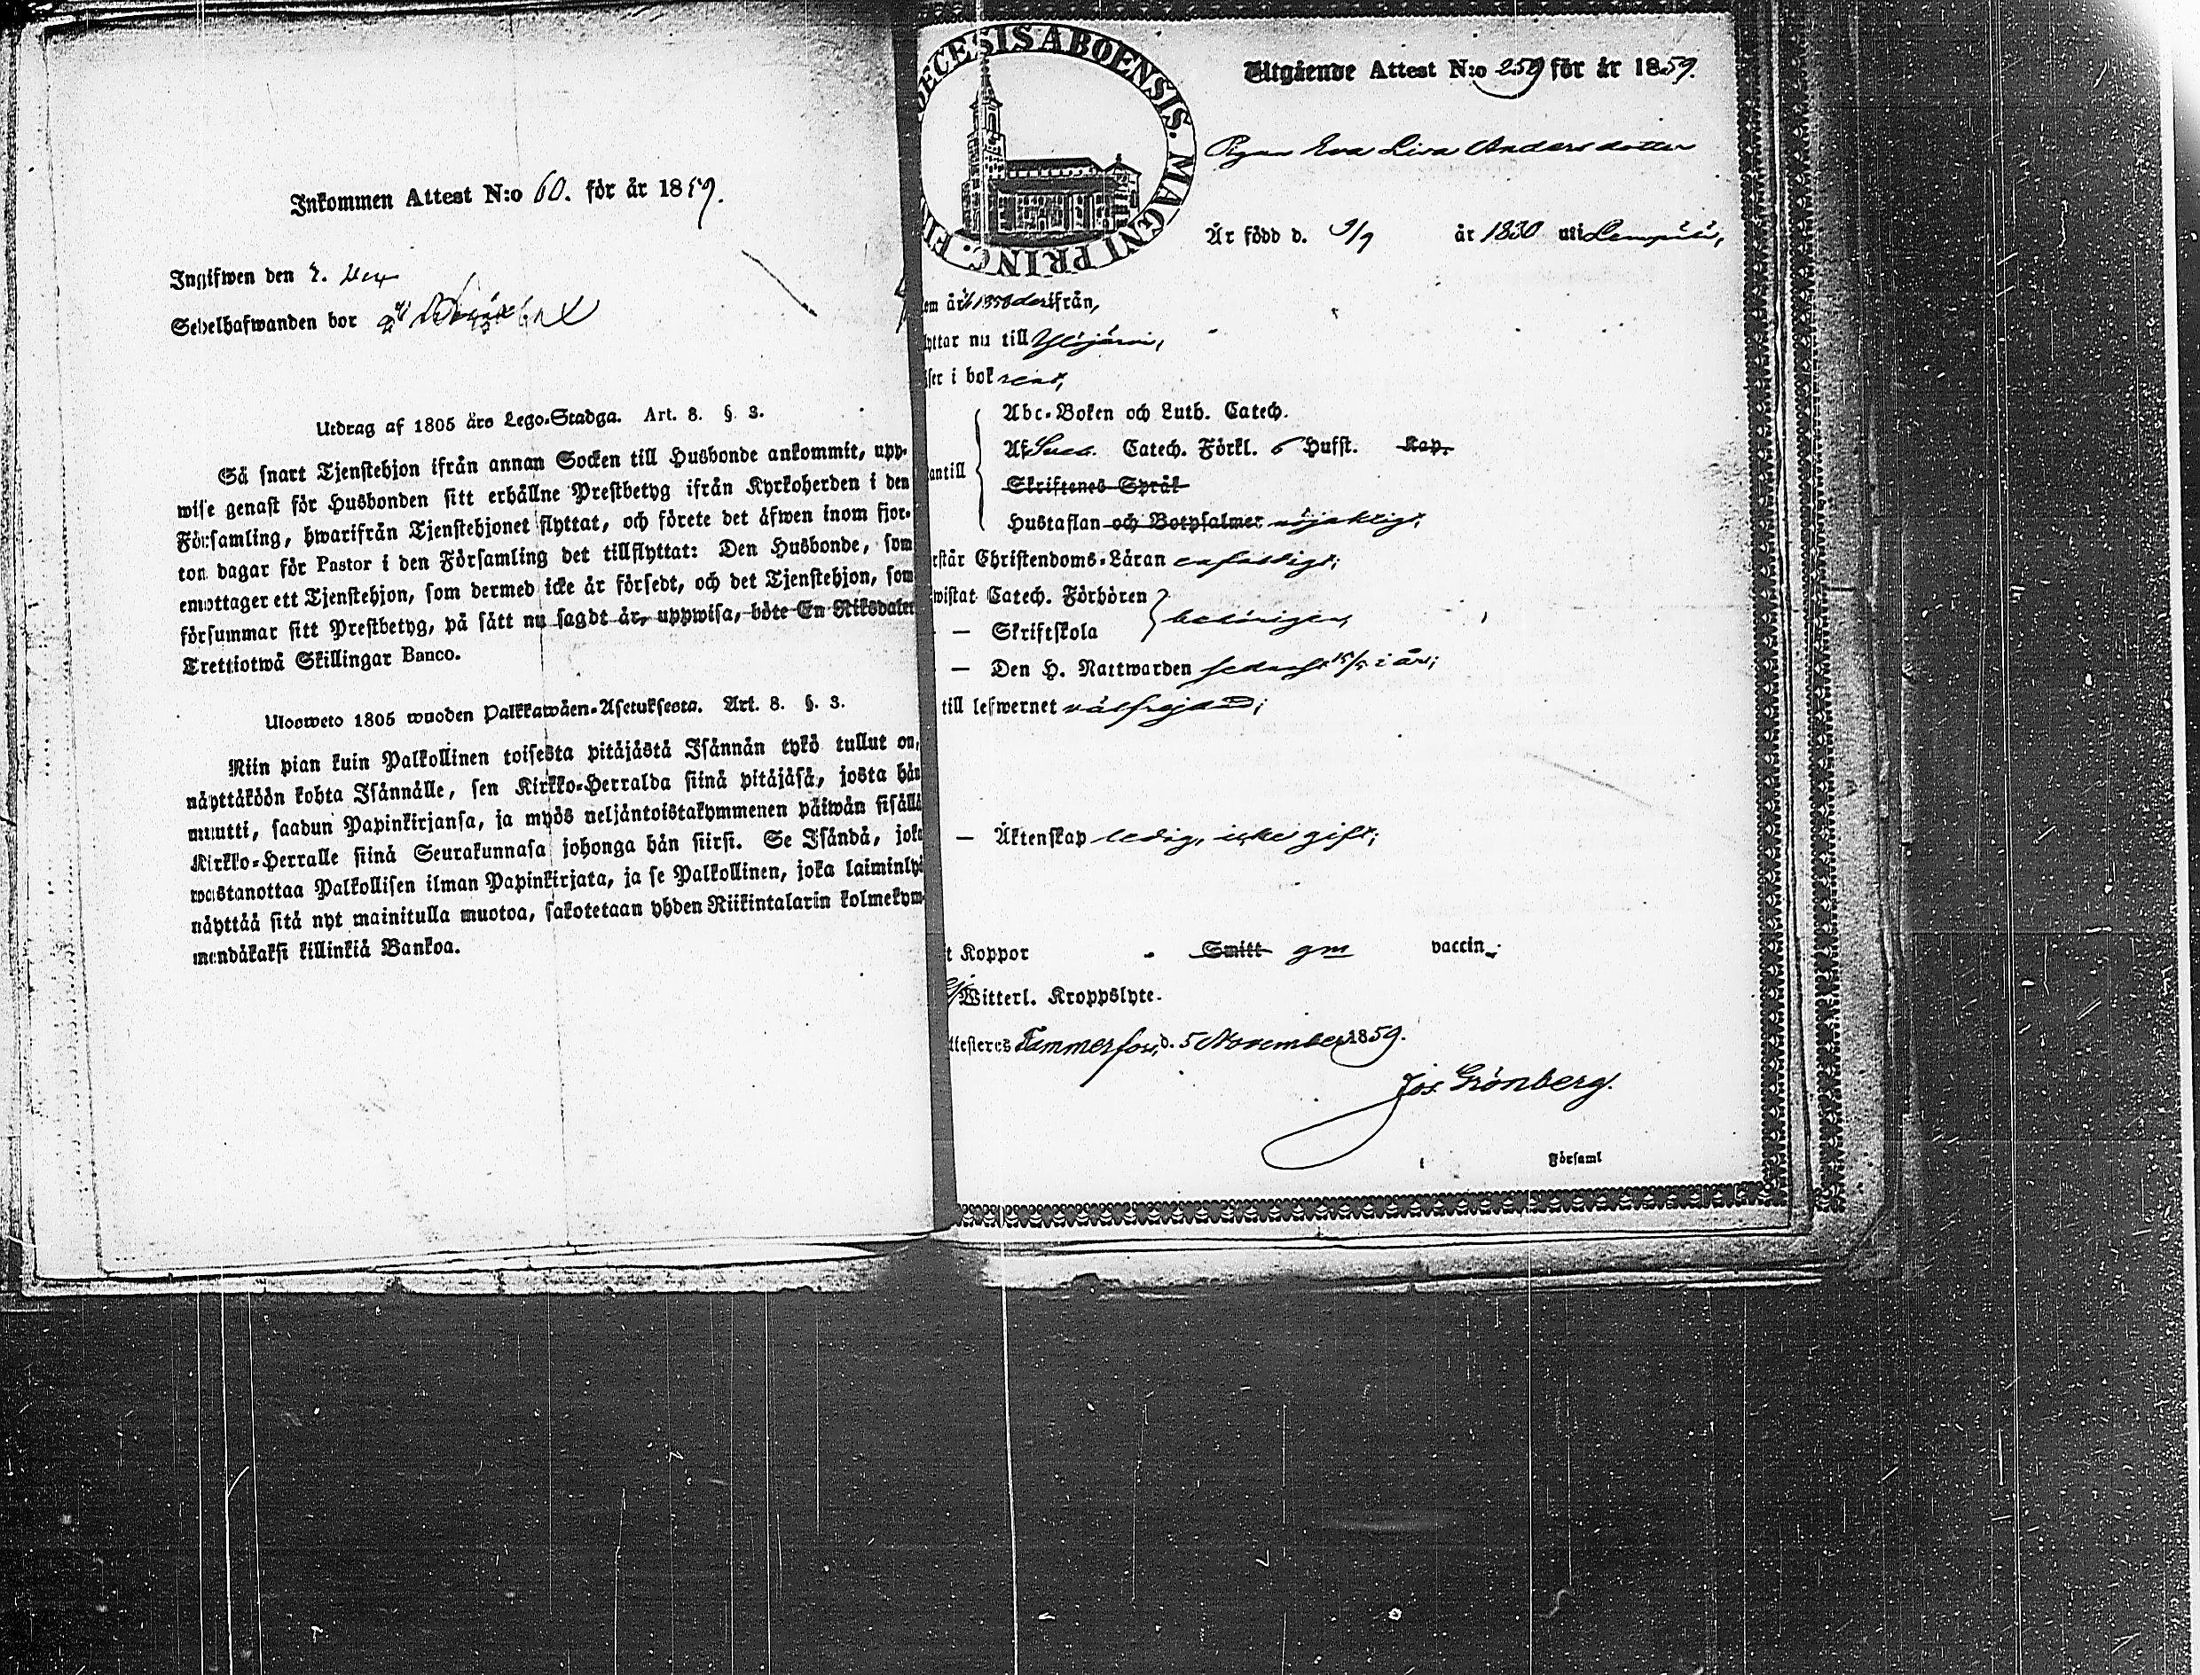 Inkommen Attest N:o 60. för år 1859.
Ingifwen den
Sedelhafwanden bor
Utdrag af 1805 års Lego-Stadga. Art. 8. §. 3.
Så snart Tjenstehjon ifrån annan Socken till Husbonde ankommit, upp-
wise genast för Husbonden sitt erhållne Prestbetyg ifrån Kyrkoherden i den
Församling, hwarifrån Tjenstehjonet flyttat, och förete det äfwen inom fjor-
ton dagar för Pastor i den Församling det tillflyttat: Den Husbonde, som
emottager ett Tjenstehjon, som dermed icke är försedt, och det Tjenstehjon, som
försummar sitt Prestbetyg, på sätt nu sagdt är, uppwisa, böte En Riksdaler
Trettiotwå Skillingar Banco.
Ulosweto 1805 wuoden Palkkawäen-Asetuksesta. Art. 8. §. 3.
Niin pian kuin Palkollinen toisesta pitäjästä Isännän tykö tullut on,
näyttäköön kohta Isännälle, sen Kirkko-Herralda siinä pitäjäsä, josta hän
muutti, saadun Papinkirjansa, ja myös neljäntoistakymmenen päiwän sisällä
Kirkko-Herralle siinä Seurakunnasa johonga hän siirsi. Se Isändä, joka
wastanottaa Palkollisen ilman Papinkirjata, ja se Palkollinen, joka laiminlyö
näyttää sitä nyt mainitulla muotoa, sakotetaan yhden Riikintalarin kolmekym-
mendäkaksi killinkiä Bankoa.
DECESIS ABOENSIS. MAGNI PRINC. FI
Utgående Attest N:o 259 för år 1859.
Pigan Eva Lisa Andersdotter
Är född d. 9/9 år 1830 uti Lempäälä,
om år 1858 derifrån,
lyttar nu till Ylöjärvi,
ser i bok rent,
antill
Abc-Boken och Luth. Catech.
Af Sveb. Catech. Förkl. 6 Hufst. Kap.
Skriftenes Språk
Hustaflan och Botpsalmer nöjaktigt,
rstår Christendoms-Läran enfaldigt;
wistat Catech. Förhören
— Skriftskola behörigen,
— Den H. Nattwarden sednast 15/5 i år;
till lefwernet välfrejdad;
— Äktenskap ledig, icke gift;
t Koppor Smitt gm vaccin.
Witterl. Kroppslyte.
ttesteres Tammerfors, d. 5 November 1859.
Jos. Grönberg.
i Församl